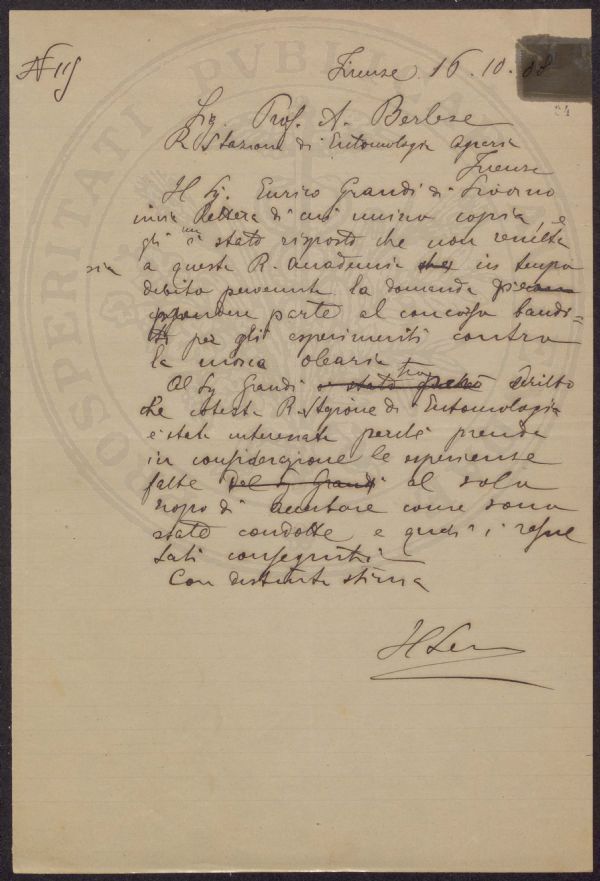 N 115
Firenze 16.10.08
24
Sig. Prof. A. Berlese
R Stazione di Entomologia Agraria
Firenze
Il Sig. Enrico Grandi di Livorno
invia lettera di cui unisco copia, e
gli è stato risposto che non risulta
sia a questa R. Accademia in tempo
debito pervenuta la domanda
prendere parte al concorso bandi=
to per gli esperimenti contro
la mosca olearia
Al Sig Grandi è stato scritto
che cotesta R. Stazione di Entomologia
è stata interessata perchè prenda
in considerazione le esperienze
fatte del Sig Grandi al solo
scopo di accertare come sono
state condotte e quali i resul
tati conseguiti
Con distinta stima
PVBLICAE
PROSPERITATI